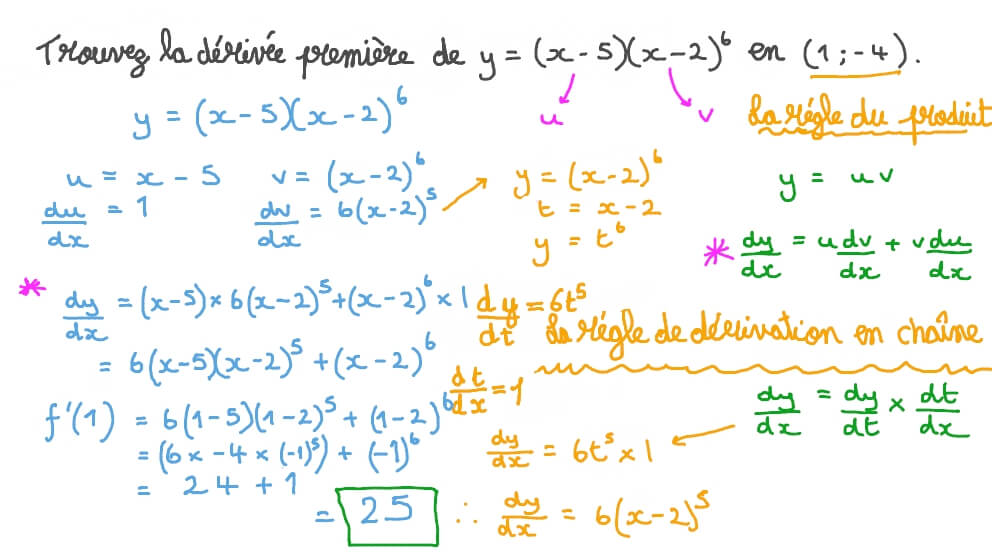 Trouvez la dérivée première de y = (x - 5)(x - 2)⁶ en (1 ; -4).
u
v
La régle du produit
y = (x - 5)(x - 2)⁶
u = x - 5
du/dx = 1
v = (x - 2)⁶
dv/dx = 6(x - 2)⁵
y = (x - 2)⁶
t = x - 2
y = t⁶
y = uv
* dy/dx = u dv/dx + v du/dx
* dy/dx = (x - 5) × 6(x - 2)⁵ + (x - 2)⁶ × 1
= 6(x - 5)(x - 2)⁵ + (x - 2)⁶
dy/dt = 6t⁵
La régle de dérivation en chaîne
dt/dx = 1
dy/dx = dy/dt × dt/dx
f'(1) = 6(1 - 5)(1 - 2)⁵ + (1 - 2)⁶
= (6 × -4 × (-1)⁵) + (-1)⁶
= 24 + 1
= 25
dy/dx = 6t⁵ × 1
∴ dy/dx = 6(x - 2)⁵